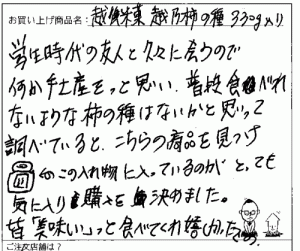 お買い上げ商品名：越後米菓 越乃柿の種 330g入り
学生時代の友人と久々に会うので
何か手土産をっと思い、普段食べれ
ないような柿の種はないかと思いって
調べていると、こちらの商品を見つけ
のこの入れ物に入っているのが とっても
気に入り購入を決めました。
皆「美味い」っと食べてくれ嬉しかった
ご注文店舗は？